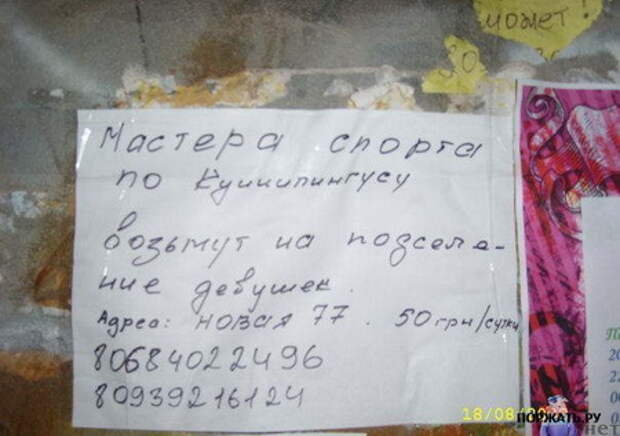 может!
Мастера спорта
по Куннилингусу
возьмут на подселе-
ние девушек.
Адреса: новая 77. 50 грн/сутки
80684022496
80939216124
18/08/
ПОРЖАТЬ.РУ
нет